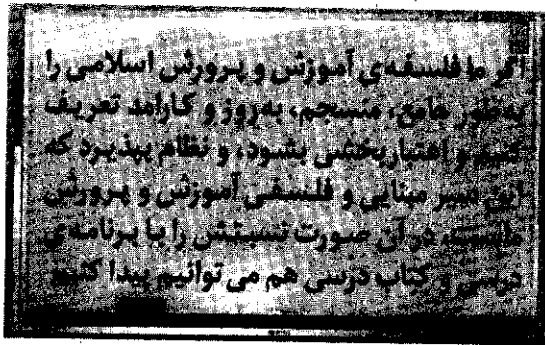 اگر ما فلسفه‌ی آموزش و پرورش اسلامی را
به‌طور جامع، منسجم، به‌روز و کارامد تعریف
کنیم و اعتباربخشی بشود، و نظام بپذیرد که
این سیر مبنایی و فلسفی آموزش و پرورش
ماست، در آن صورت نسبتش را با برنامه‌ی
درسی و کتاب درسی هم می توانیم پیدا کنیم